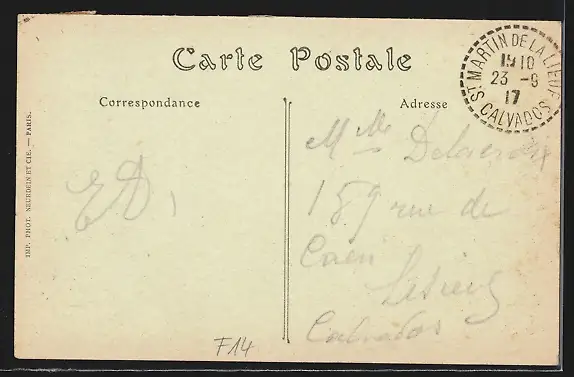 Carte Postale
Correspondance
Adresse
ST MARTIN DE LA LIEUE
1910
23 -9
17
CALVADOS
IMP. PHOT. NEURDEIN ET CIE. — PARIS.
ED,
Mlle Delacroix
159 rue de
Caen
Lisieux
Calvados
F14